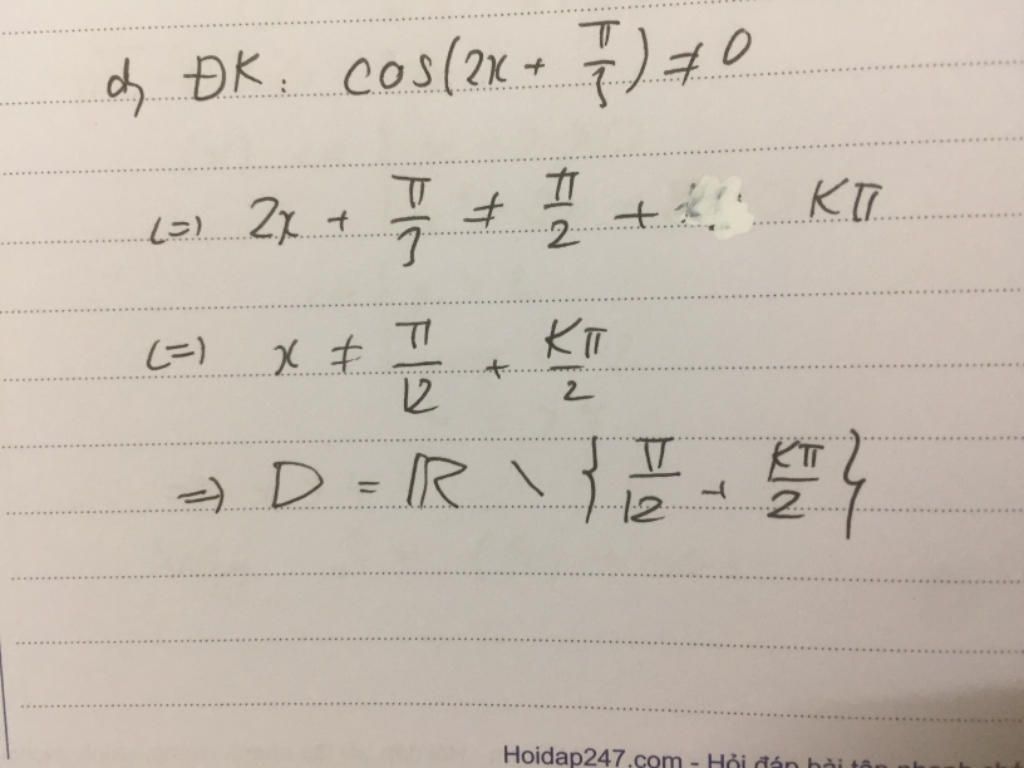 d, ĐK: cos(2x + π/3) ≠ 0
(=) 2x + π/3 ≠ π/2 + Kπ
(=) x ≠ π/12 + Kπ/2
=) D = ℝ \ { π/12 + Kπ/2 }
Hoidap247.com - Hỏi đáp bài tập nhanh